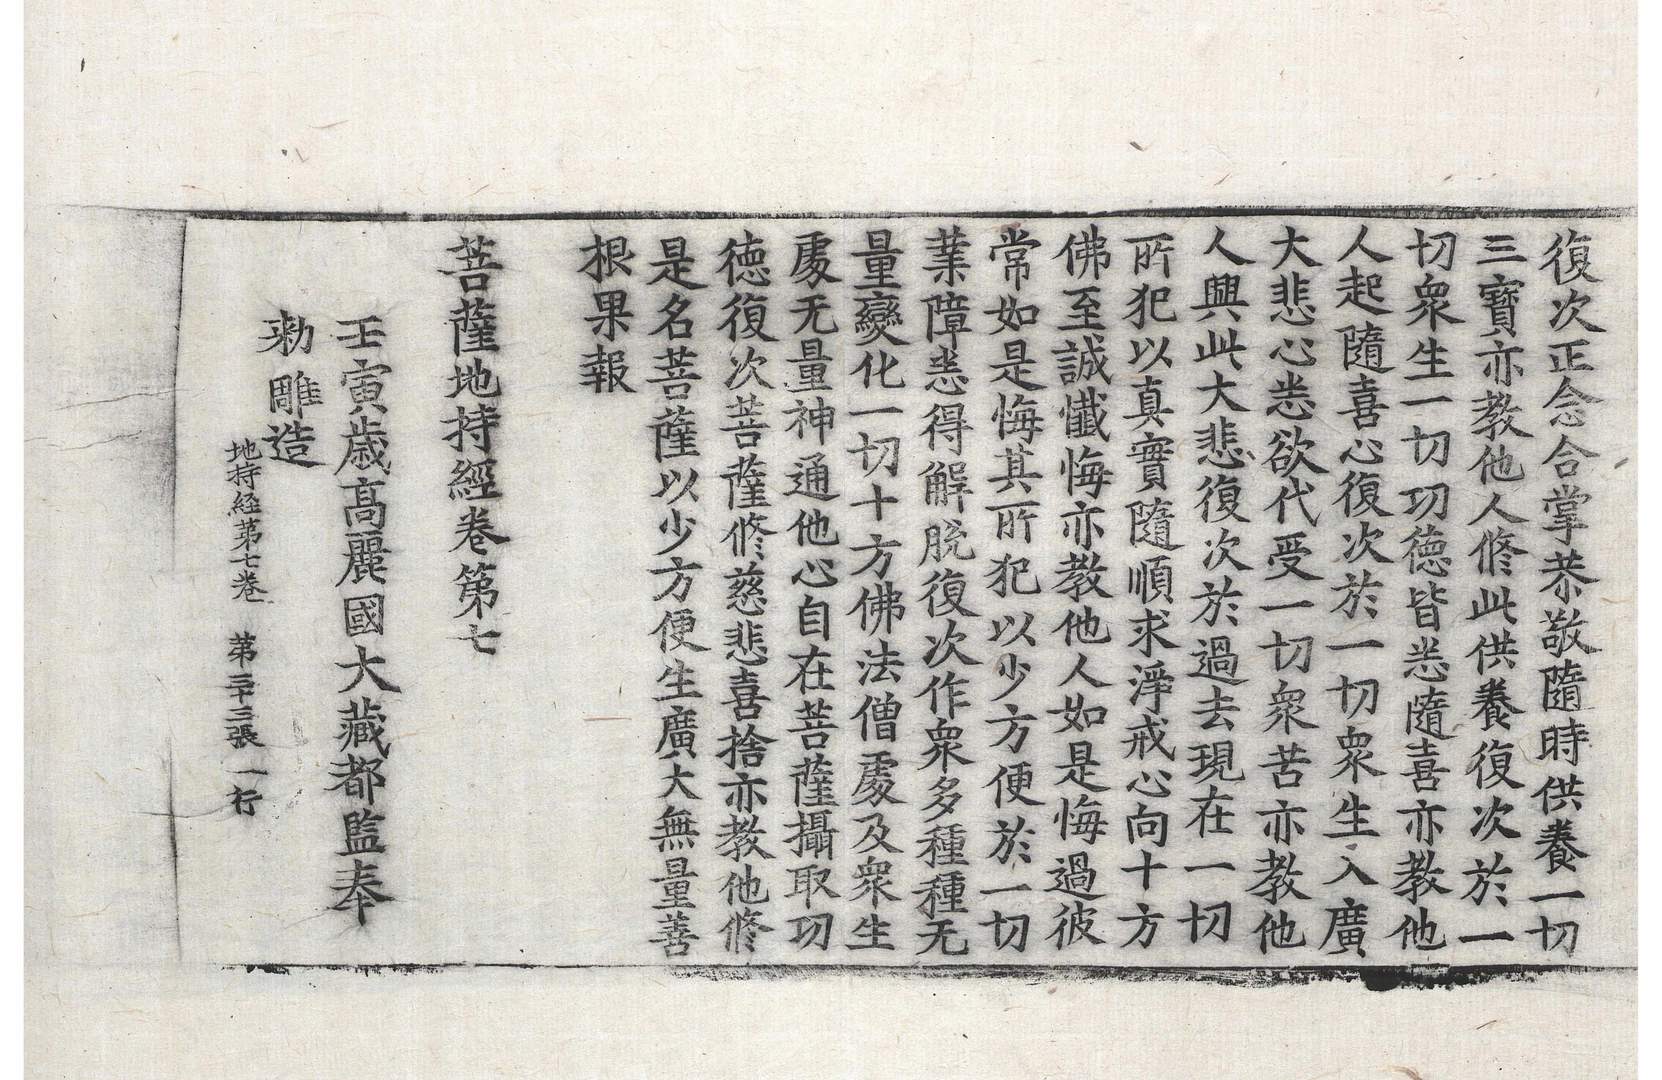 復次正念合掌恭敬隨時供養一切
三寶亦教他人修此供養復次於一
切衆生一切功德皆悉隨喜亦教他
人起隨喜心復次於一切衆生入廣
大悲心悉欲代受一切衆苦亦教他
人興此大悲復次於過去現在一切
所犯以真實隨順求淨戒心向十方
佛至誠懺悔亦教他人如是悔過彼
常如是悔其所犯以少方便於一切
業障悉得解脫復次作衆多種種无
量變化一切十方佛法僧處及衆生
處无量神通他心自在菩薩攝取功
德復次菩薩修慈悲喜捨亦教他修
是名菩薩以少方便生廣大無量善
根果報
菩薩地持經卷第七
壬寅歲高麗國大藏都監奉
勅雕造
地持経第七巻 第三十三張 一行